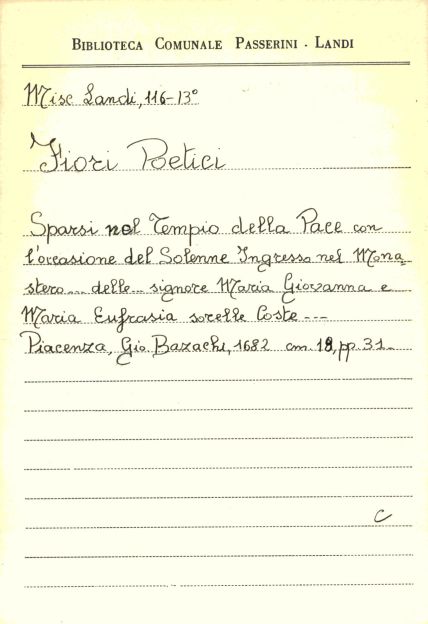 BIBLIOTECA COMUNALE PASSERINI - LANDI
Misc Landi, 116-13°
Fiori Poetici
Sparsi nel Tempio della Pace con
l'occasione del Solenne Ingresso nel Mona-
stero... delle... signore Maria Giovanna e
Maria Eufrasia sorelle Coste ---
Piacenza, Gio Bazachi, 1682 cm. 18, pp. 31-
C